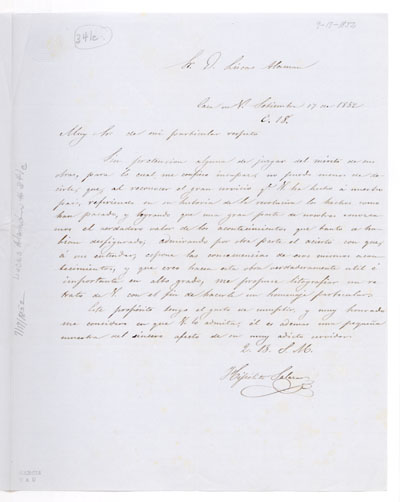 341c
9-17-1852
Sr. D. Lúcas Alaman
Casa de V. Setiembre 17 de 1852
C. 18.
Muy Sr. de mi particular respeto
Sin pretension alguna de juzgar del mérito de su
obra, para lo cual me confieso incapaz, no puedo menos de de-
cirle; que, al reconocer el gran servicio qe. V. ha hecho á nuestro
pais, refiriendo en su historia de la revolucion los hechos como
han pasado, y logrando que una gran parte de nosotros conozca-
mos el verdadero valor de los acontecimientos que tanto se ha-
bian desfigurado, admirando por otra parte el acierto con que,
á mi entender, espone las consecuencias de esos mismos acon-
tecimientos, y que creo hacen esta obra verdaderamente util é
importante en alto grado, me propuse litografiar un re-
trato de V. con el fin de hacerle un homenage particular.
Este propósito tengo el gusto de cumplir, y muy honrado
me considero en que V. lo admita; él es ademas una pequeña
muestra del sincero afecto de su muy adicto servidor
Q. B. S. M.
Hipólito Salazar
GARCIA